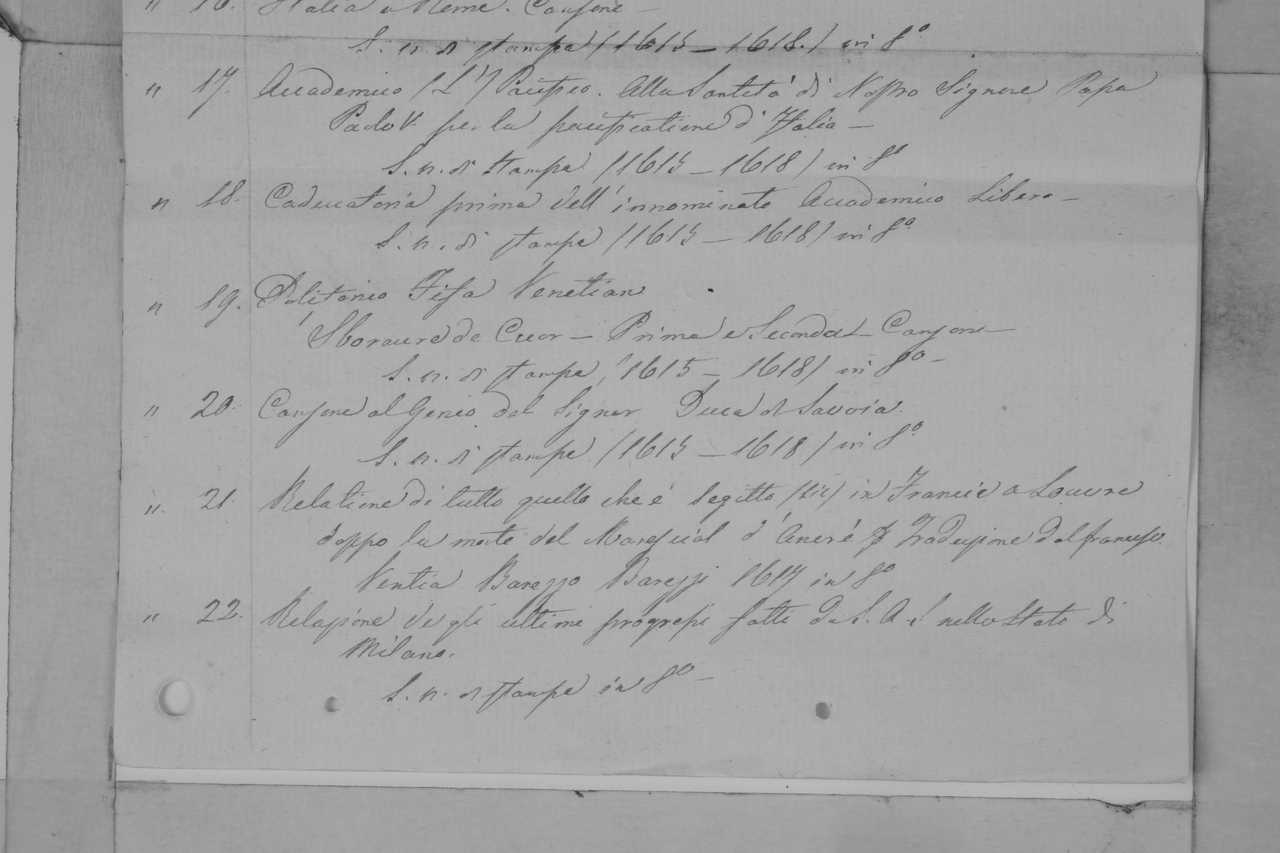 " 16. Italia a Reme. Canzone —
S. n. di stampa (1615 — 1618.) in 8º
" 17. Accademico (L') Pacifico. Alla Santità di Nostro Signore Papa
Paolo V per la pacificatione d'Italia —
S. n. di stampa (1615 — 1618) in 8º
" 18. Caduceatoria prima dell' innominato Accademico Libero —
S. n. di stampa (1615 — 1618) in 8º
" 19. Politonio Venetian
Sboraure da Cuor — Prima e Seconda — Canzone —
S. n. di stampa (1615 — 1618) in 8º —
" 20. Canzone al Genio del Signor Duca di Savoia.
S. n. di stampa (1615 — 1618) in 8º
" 21. Relatione di tutto quello che è segitto (sic) in Francia a Louvre
doppo la morte del Marescial d'Ancre Traduzione dal francese
Ventia Barezzo Barezzi 1617 in 8º
" 22. Relazione degli ultimi progressi fatti da S. A. S. nello Stato di
Milano.
S. n. di stampa in 8º —